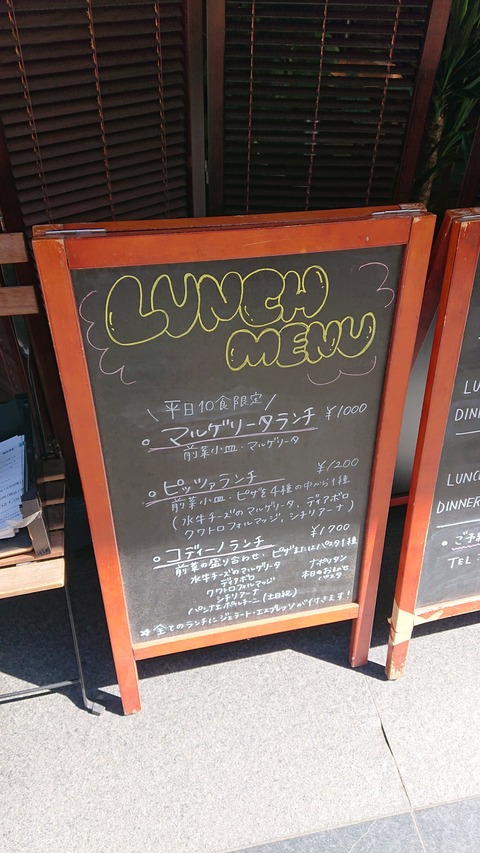 LUNCH
MENU
\ 平日10食限定 /
・マルゲリータランチ ¥1000
前菜小皿・マルゲリータ
・ピッツァランチ ¥1200
前菜小皿・ピザを4種の中から1種
(水牛チーズのマルゲリータ、ディアボロ
クワトロフォルマッジ、シチリアーナ)
・コディーノランチ ¥1700
前菜の盛り合わせ・ピザまたはパスタ1種
水牛チーズのマルゲリータ
ディアボロ
クワトロフォルマッジ
シチリアーナ
(土日祝)
ナポリタン
本日のおまかせ
パスタ
※全てのランチにジェラート・エスプレッソが付きます!
LU
DINN
LUNCH
DINNER
・ご予
TEL